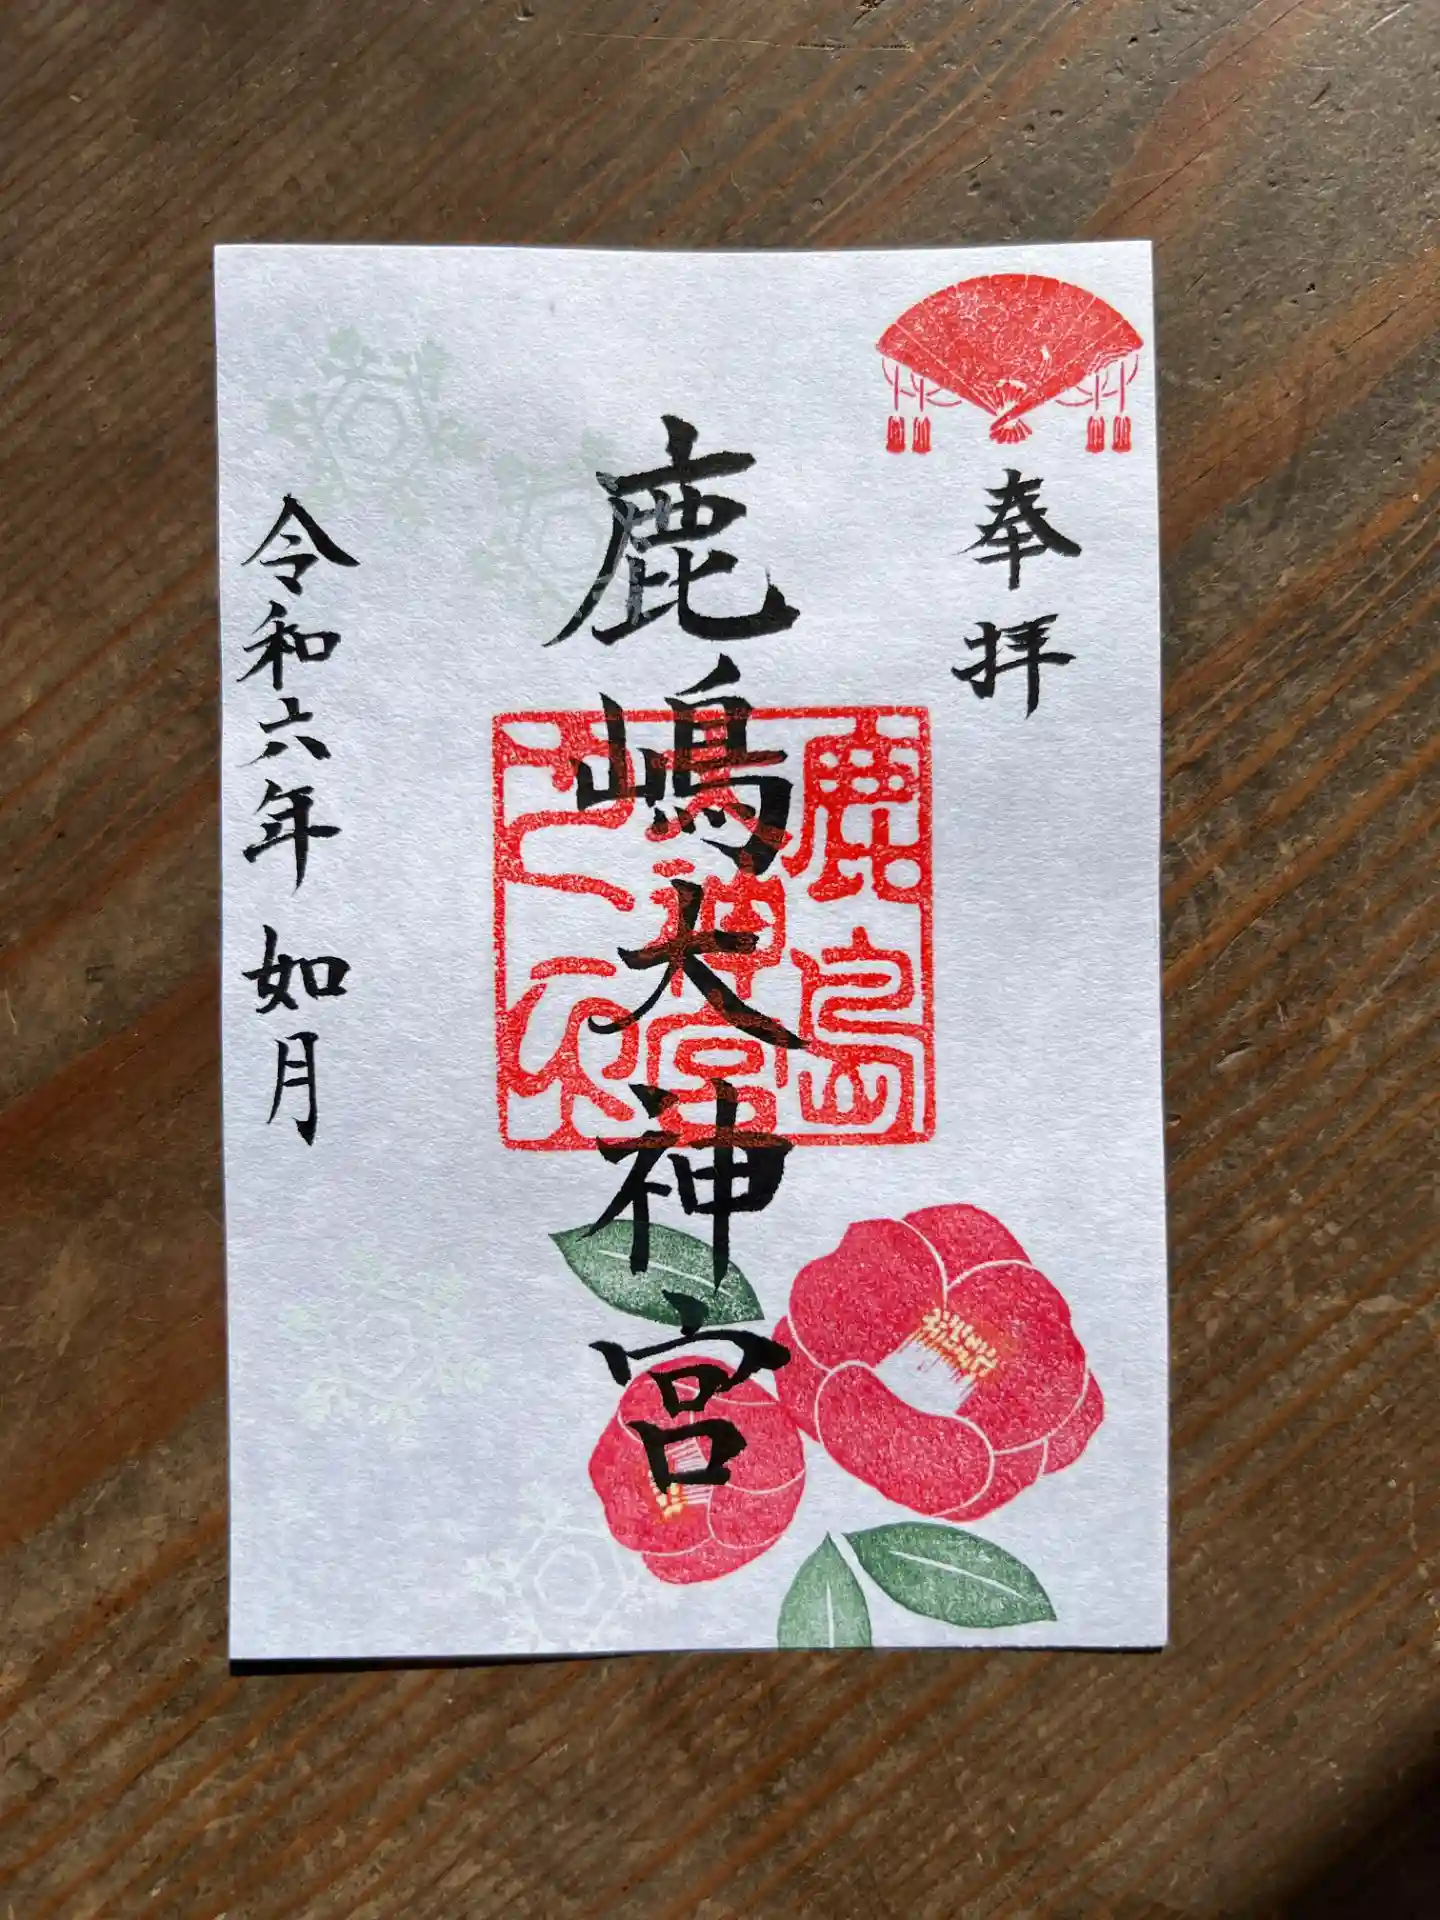 奉拝
鹿嶋大神宮
鹿島
神宮
令和六年 如月